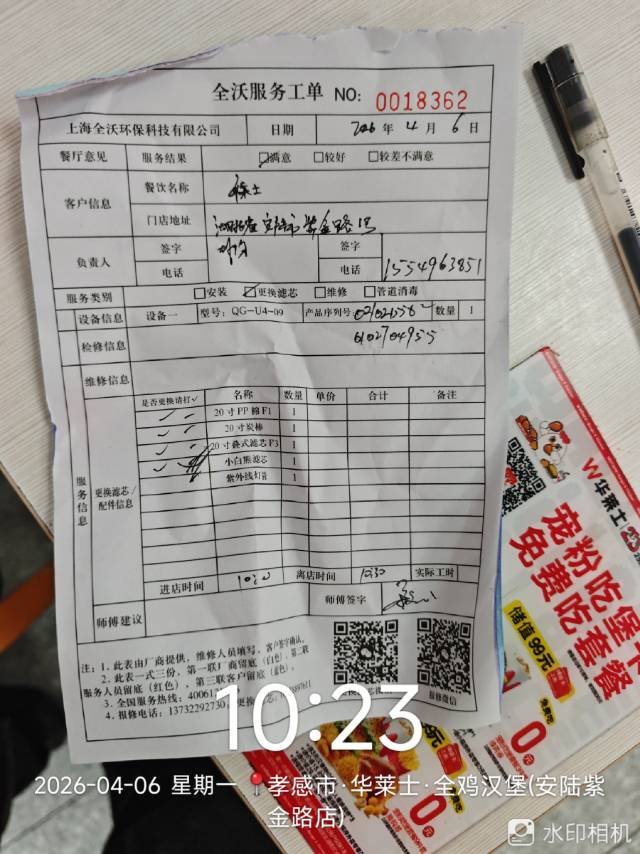 全沃服务工单 NO: 0018362
上海全沃环保科技有限公司 日期 2026年4月6日
餐厅意见 服务结果 ☑满意 □较好 □较差不满意
客户信息 餐饮名称
门店地址 湖北省安陆市紫金路1号
负责人 签字 签字
电话 电话 1554963851
服务类别 □安装 ☑更换滤芯 □维修 □管道消毒
设备信息 设备一 型号: QG-U4-09 产品序列号 数量 1
检修信息 6102704955
维修信息
服务信息 更换滤芯/配件信息
是否更换请打✓ 名称 数量 单价 合计 备注
✓ 20寸PP棉F1 1
✓ 20寸炭棒 1
✓ 20寸叠式滤芯F3 1
✓ 小白熊滤芯 1
紫外线灯管 1
进店时间 离店时间 10:30 实际工时
师傅建议 师傅签字
注: 1. 此表由厂商提供, 维修人员填写, 客户签字确认。
2. 此表一式三份, 第一联厂商留底(白色), 第二联
服务人员留底(红色), 第三联客户留底(蓝色)。
3. 全国服务热线: 40061
4. 报修电话: 13732292730, 更换
报修微信
W华莱士
宠粉吃堡
免费吃套餐
储值99元
0元
0元
10:23
2026-04-06 星期一 孝感市·华莱士·全鸡汉堡(安陆紫
金路店)
水印相机